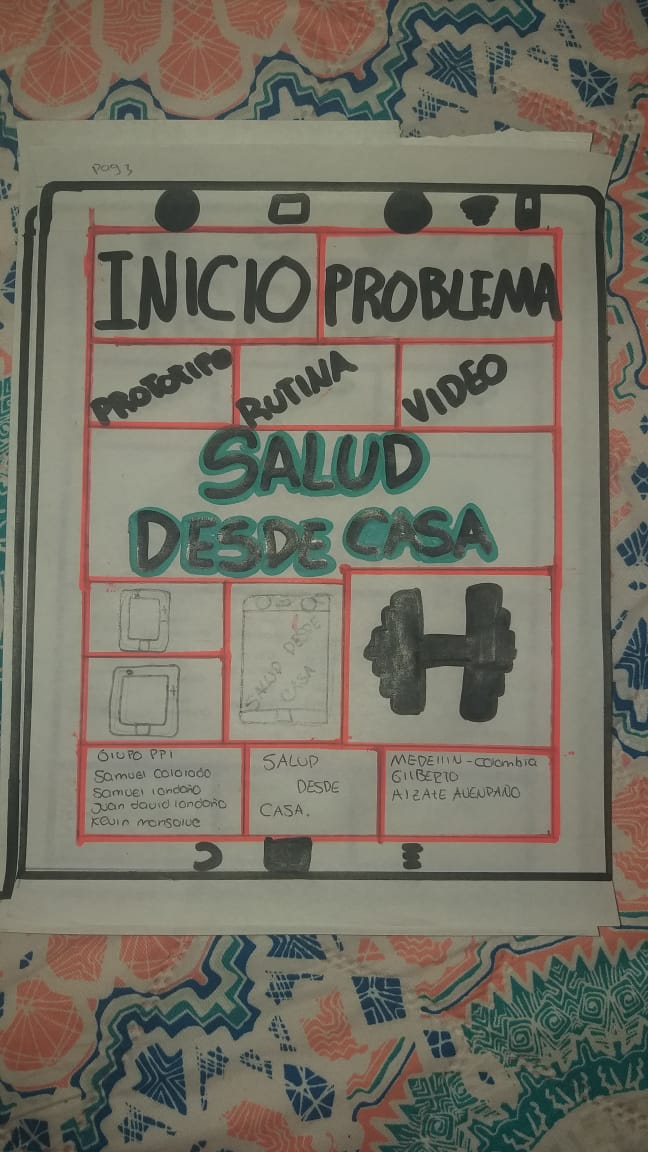 Pag 3
INICIO PROBLEMA
PROTOTIPO RUTINA VIDEO
SALUD
DESDE CASA
SALUD DESDE
CASA
GRUPO PPI
Samuel Colorado
Samuel londoño
Juan david londoño
Kevin monsalve
SALUD
DESDE
CASA.
MEDEllIN-Colombia
GIlBERTO
AlZATE AUENDAÑO